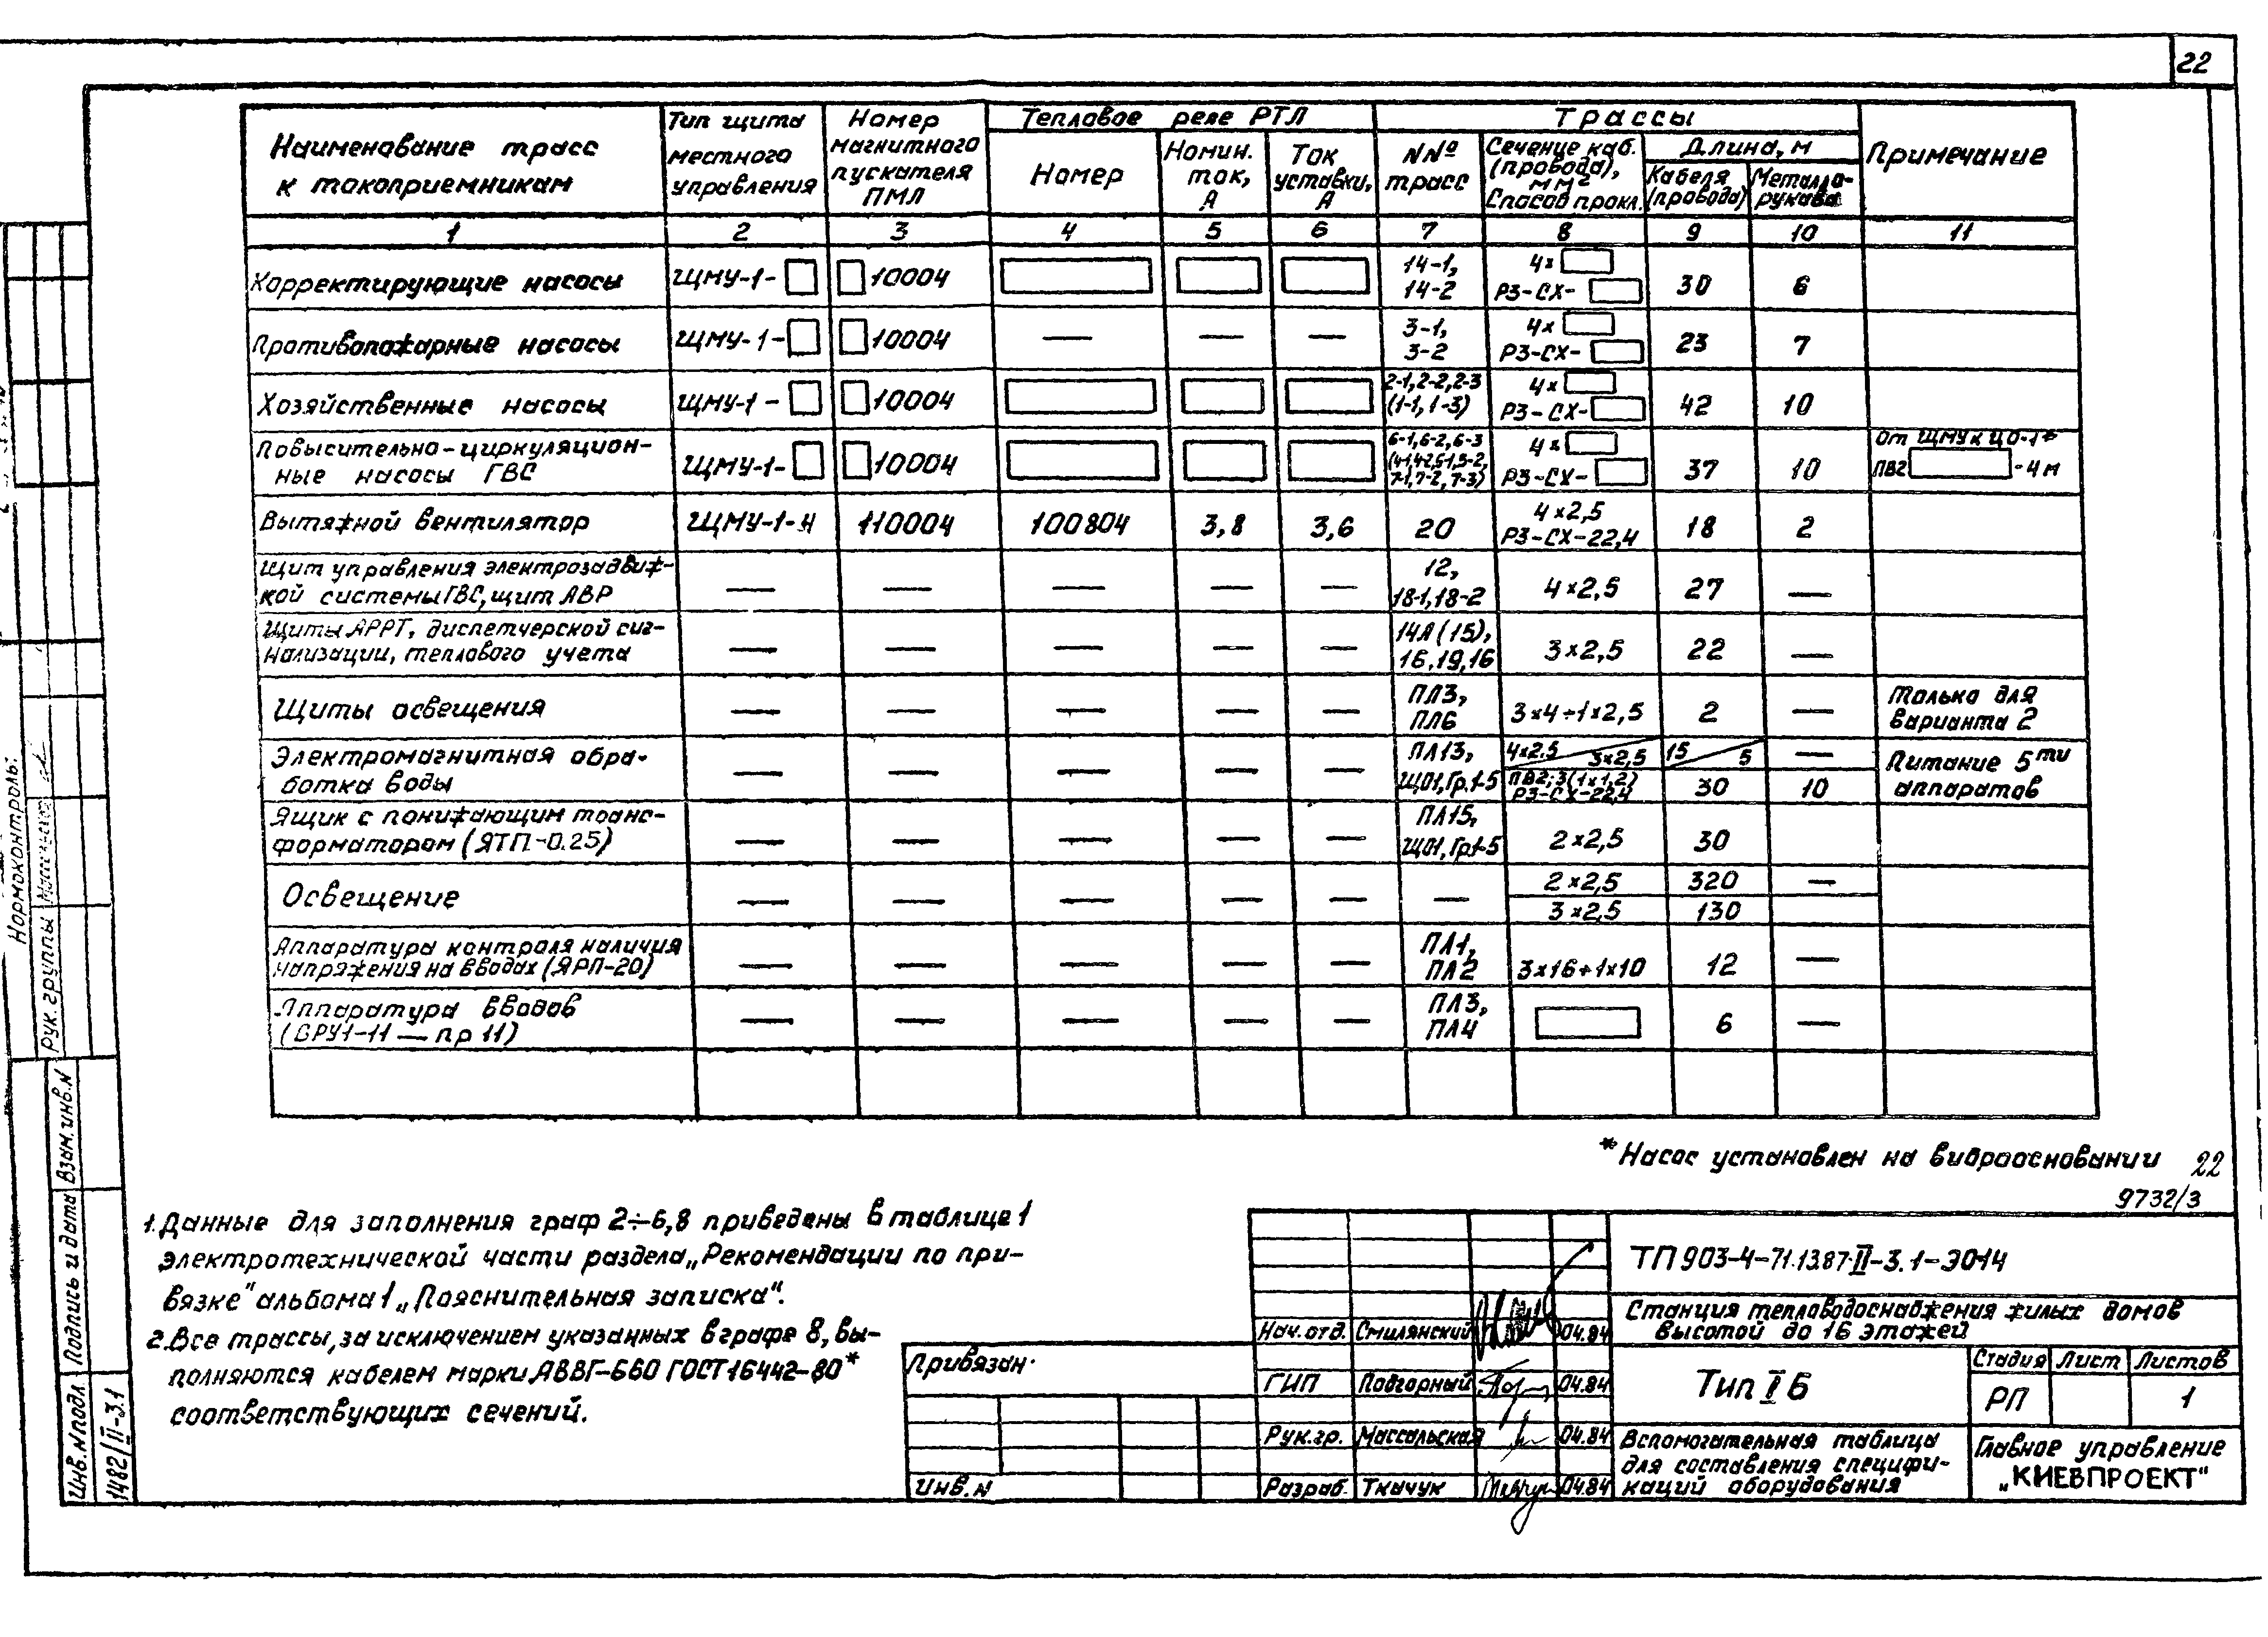 22
Наименование трасс
к токоприемникам
Тип щита
местного
управления
Номер
магнитного
пускателя
ПМЛ
Тепловое реле РТЛ
Номер
Номин.
ток,
А
Ток
уставки,
А
Трассы
NNº
трасс
Сечение каб.
(провода),
мм²
Способ прокл.
Длина, м
Кабеля
(провода)
Металло-
рукава
Примечание
1 2 3 4 5 6 7 8 9 10 11
Корректирующие насосы ЩМУ-1- 10004 14-1, 14-2 4× РЗ-СХ- 30 6
Противопожарные насосы ЩМУ-1- 10004 — — — 3-1, 3-2 4× РЗ-СХ- 23 7
Хозяйственные насосы ЩМУ-1- 10004 2-1, 2-2, 2-3 (1-1, 1-3) 4× РЗ-СХ- 42 10
Повысительно-циркуляцион-
ные насосы ГВС ЩМУ-1- 10004 6-1, 6-2, 6-3 (4-1, 4-2, 5-1, 5-2, 7-1, 7-2, 7-3) 4× РЗ-СХ- 37 10 От ЩМУ к ЦО-1* ПВ2 -4м
Вытяжной вентилятор ЩМУ-1-Н 110004 100804 3,8 3,6 20 4×2,5 РЗ-СХ-22,4 18 2
Щит управления электрозадвиж-
кой системы ГВС, щит АВР — — — — — 12, 18-1, 18-2 4×2,5 27 —
Щиты АРРТ, диспетчерской сиг-
нализации, теплового учета — — — — — 14А (15), 16, 19, 16 3×2,5 22 —
Щиты освещения — — — — — ПЛ3, ПЛ6 3×4+1×2,5 2 — Только для варианта 2
Электромагнитная обра-
ботка воды — — — — — ПЛ13, ЩО1, Гр.1-5 4×2,5 3×2,5 15 5 —
ПВ2; 3(1×1,2) РЗ-СХ-22,4 30 10 Питание 5ти аппаратов
Ящик с понижающим транс-
форматором (ЯТП-0.25) — — — — — ПЛ15, ЩО1, Гр.1-5 2×2,5 30
Освещение — — — — — — 2×2,5 320 —
3×2,5 130
Аппаратура контроля наличия
напряжения на вводах (ЯРП-20) — — — — — ПЛ1, ПЛ2 3×16+1×10 12 —
Аппаратура вводов
(ВРУ1-11 — пр 11) — — — — — ПЛ3, ПЛ4 6 —
*Насос установлен на виброосновании 22
9732/3
1. Данные для заполнения граф 2÷6,8 приведены в таблице 1
электротехнической части раздела „Рекомендации по при-
вязке" альбома 1 „Пояснительная записка".
2. Все трассы, за исключением указанных в графе 8, вы-
полняются кабелем марки АВВГ-660 ГОСТ 16442-80*
соответствующих сечений.
Привязан.
Инв. N
Нач. отд. Смилянский 04.84
ГИП Подгорный 04.84
Рук. гр. Массальская 04.84
Разраб. Ткачук 04.84
ТП 903-4-71.13.87-II-3.1-ЭО14
Станция тепловодоснабжения жилых домов
высотой до 16 этажей
Тип I Б
Стадия Лист Листов
РП 1
Вспомогательная таблица
для составления специфи-
каций оборудования
Главное управление
„КИЕВПРОЕКТ"
Нормоконтроль:
Рук. группы
Взам. инв. N
Подпись и дата
Инв. N подл.
1482/II-3.1